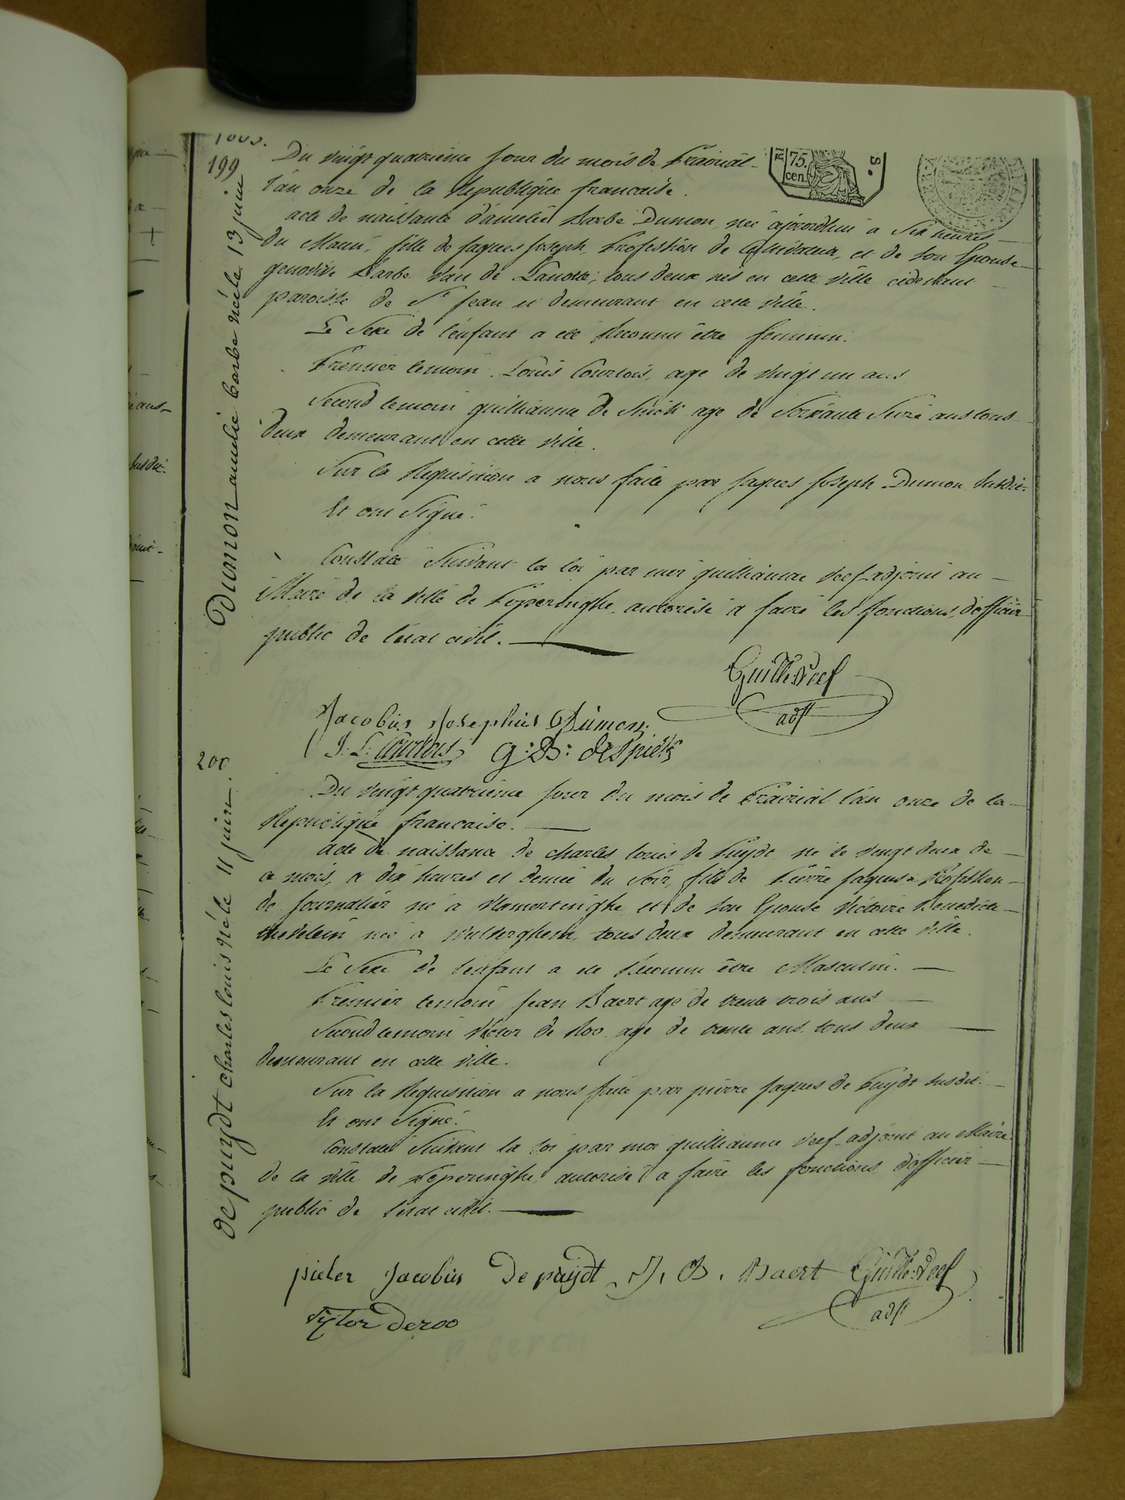 1803.
199
Dumon amelie barbe née le 13 juin
75.
cen.
Du vingt quatrieme jour du mois de Prairial
l'an onze de la Republique francaise.
acte de naissance d'amelie Barbe Dumon, née ajourdhui a Six heures
du Matin, fille de Jaques Joseph, Profession de et de Son Epouse
genovive Barbe de Lanotte, tous deux nés en cette ville cidevant
paroisse de St Jean et demeurant en cette ville.
Le Sexe de l'enfant a été Reconnu être feminin.
Premier temoin, Louis Courtois, age de vingt un ans
Second temoin guilliaume de age de Soixante ans tous
deux demeurant en cette ville.
Sur la Requisition a nous faite par Jaques Joseph Dumon Susdit.
Et ont Signé.
Constaté Suivant la loi par moi guilliaume Deef adjoint au
Maire de la ville de Poperinghe, autorisé a faire les fonctions d'officier
public de l'état civil.
Guille: Deef
adjt
Jacobus Josephus Dumon
J. L. Courtois G: D: despicht
200
de puydt charles louis né le 11 juin.
Du vingt quatrieme jour du mois de Prairial l'an onze de la
Republique francaise.
acte de naissance de charles louis de Puydt né le vingt deux de
ce mois, a dix heures et demie du Soir, fils de Pierre Jaques Profession
de Journalier né a et de Son Epouse Victoire Benedicte
née a Wulverghem, tous deux demeurant en cette ville.
Le Sexe de l'enfant a été Reconnu être Masculin.
Premier temoin Jean Baert agé de trente trois ans
Second temoin Victor de Roo age de trente ans, tous deux
demeurant en cette ville.
Sur la Requisition a nous faite par pierre Jaques de Puydt Susdit.
Et ont Signé.
Constaté Suivant la loi par moi guilliaume Deef adjoint au Maire
de la ville de Poperinghe autorisé a faire les fonctions d'officier
public de l'état civil.
pieter Jacobus De puijdt J. B. Baert Guille: Deef
adjt
Victor Deroo